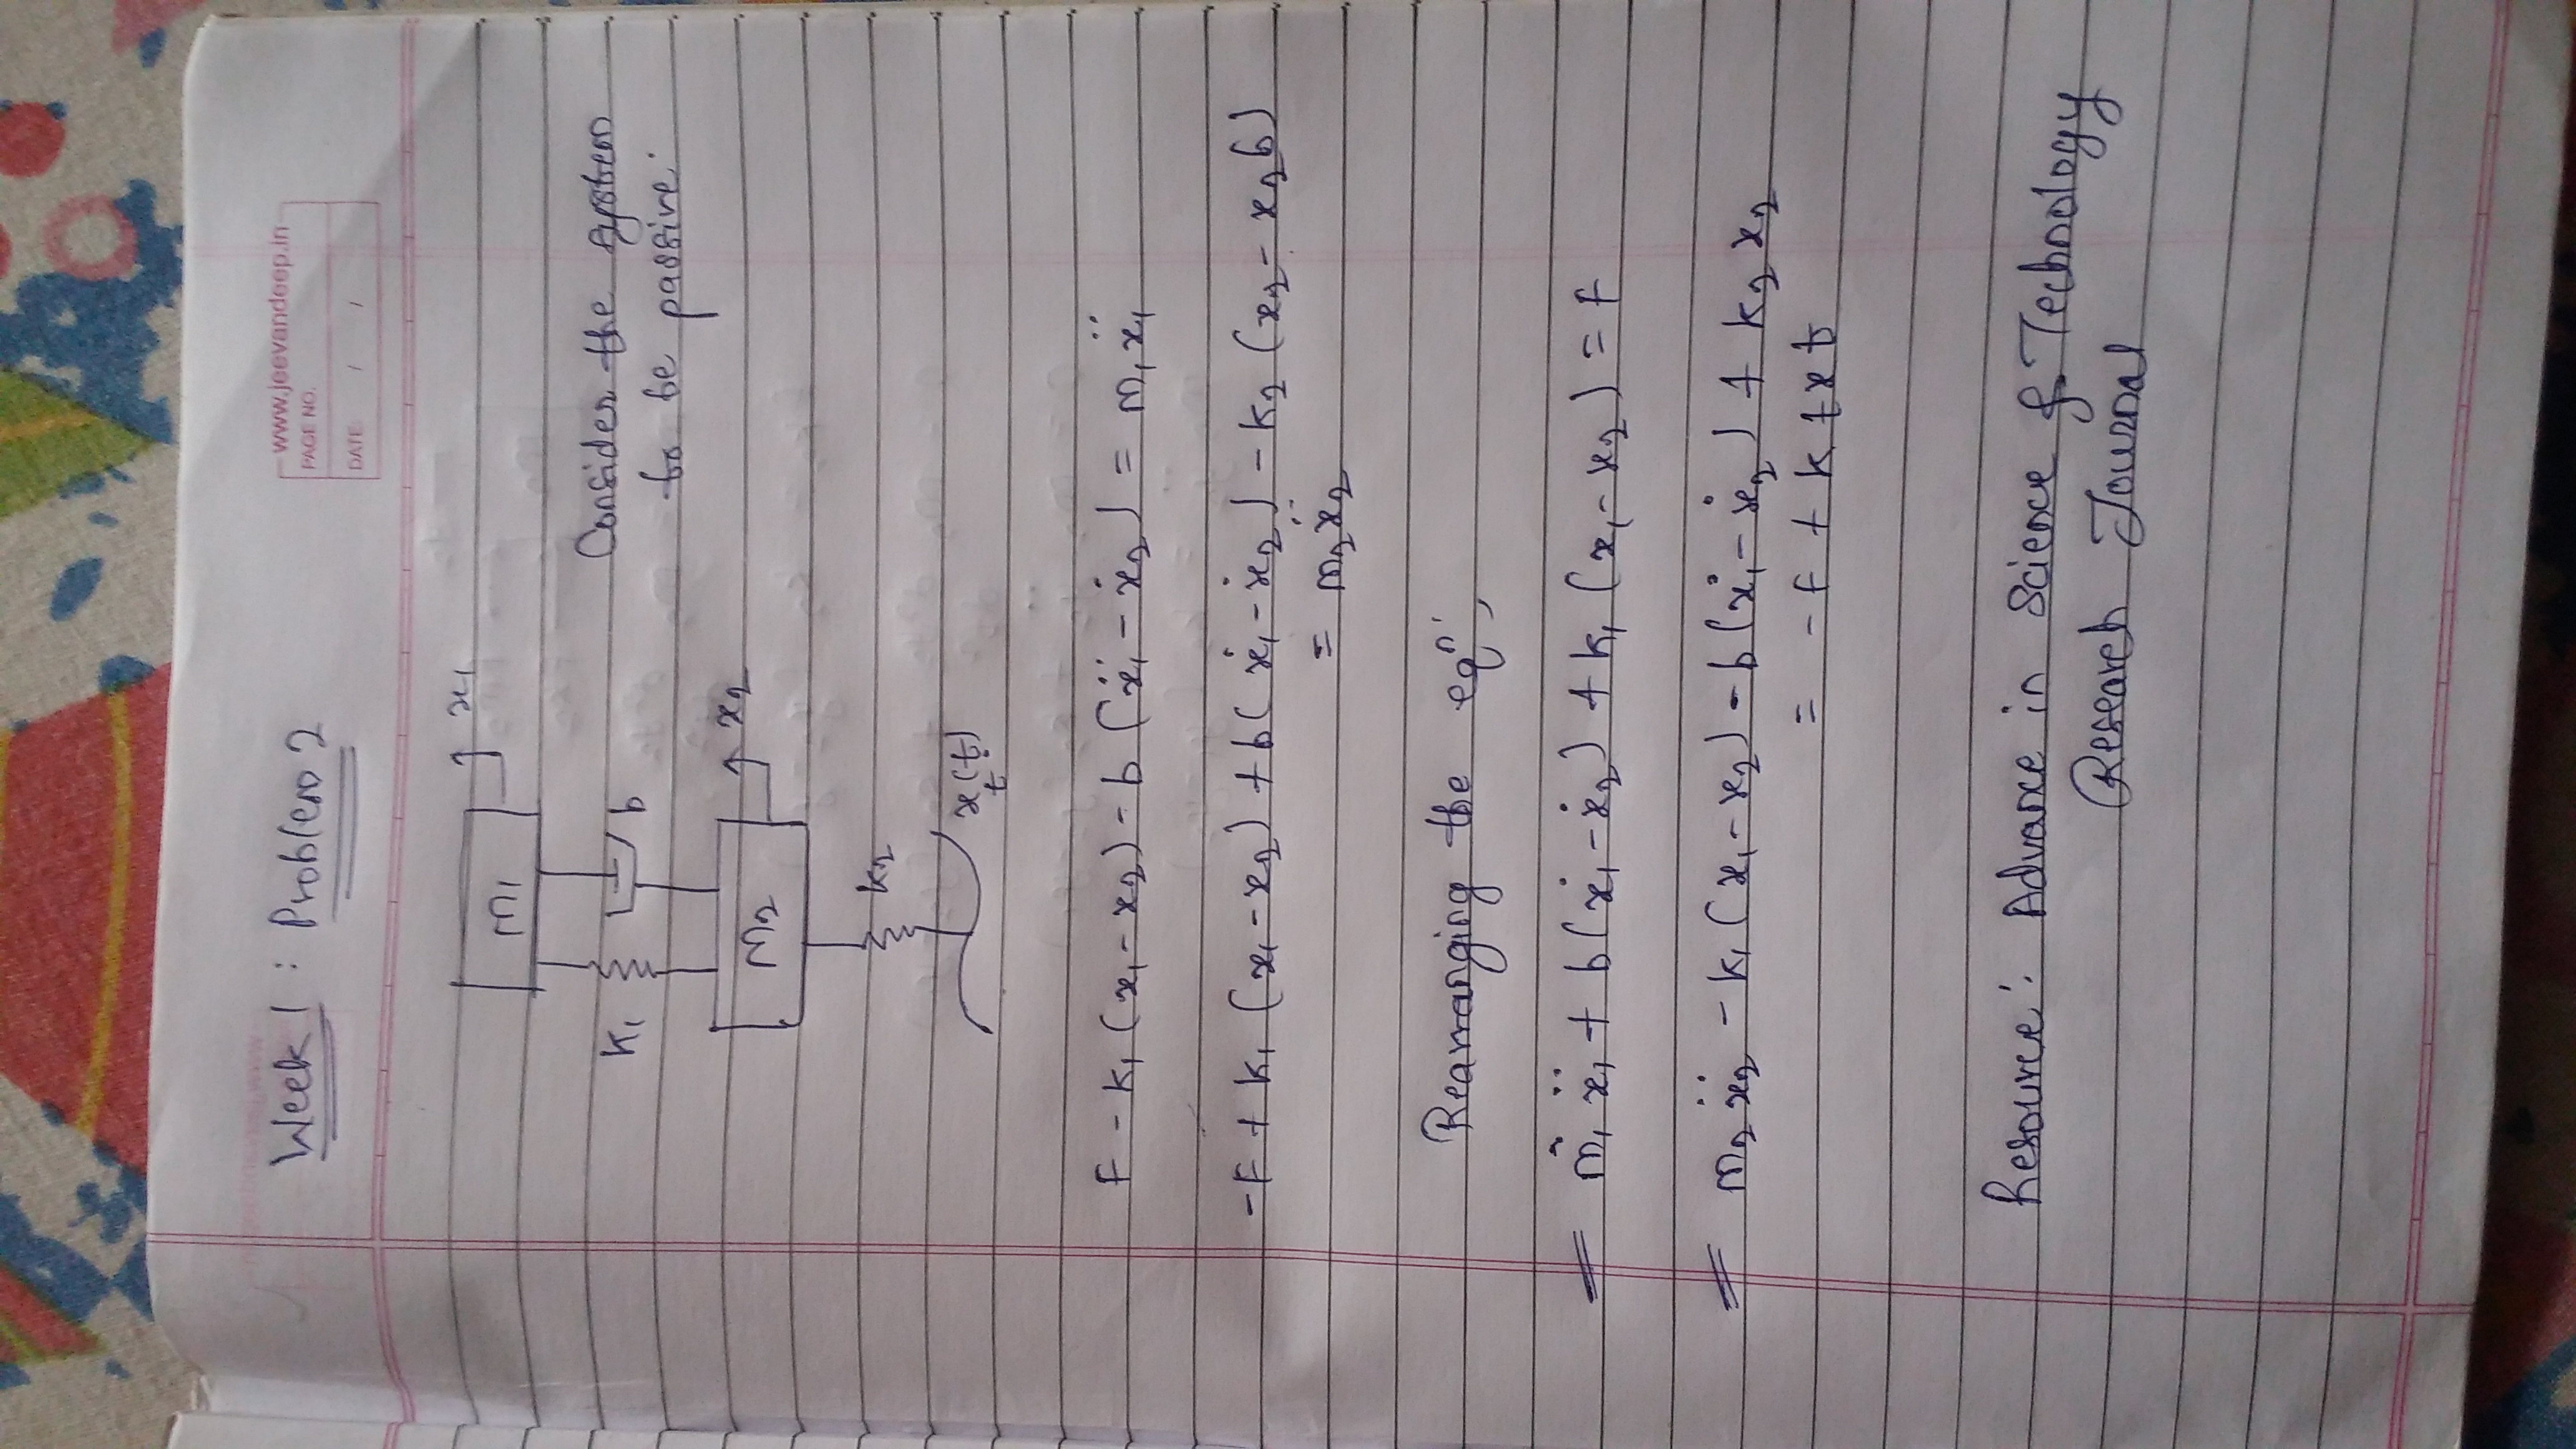 Week 1 : Problem 2
www.jeevandeep.in
PAGE NO.
DATE / /
m1
x1
K1
b
Consider the system
to be passive.
m2
x2
k2
x(t)
t
F - K1 (x1 - x2) - b (ẍ1 - ẋ2) = m1 ẍ1
-F + K1 (x1 - x2) + b( ẋ1 - ẋ2) - K2 (x2 - x2b)
= m2 ẍ2
Rearranging the eqn,
= m1 ẍ1 + b(ẋ1 - ẋ2) + k1 (x1 - x2) = F
= m2 ẍ2 - k1 (x1 - x2) - b(ẋ1 - ẋ2) + k2 x2
= - F + k t x t
Resource : Advance in Science & Technology
Research Journal